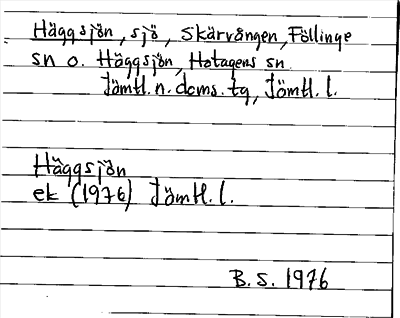 Häggsjön, sjö, Skärvången, Föllinge
sn o. Häggsjön, Hotagens sn
Jämtl. n. doms. tg, Jämtl. l.
Häggsjön
ek (1976) Jämtl. l.
B. S. 1976